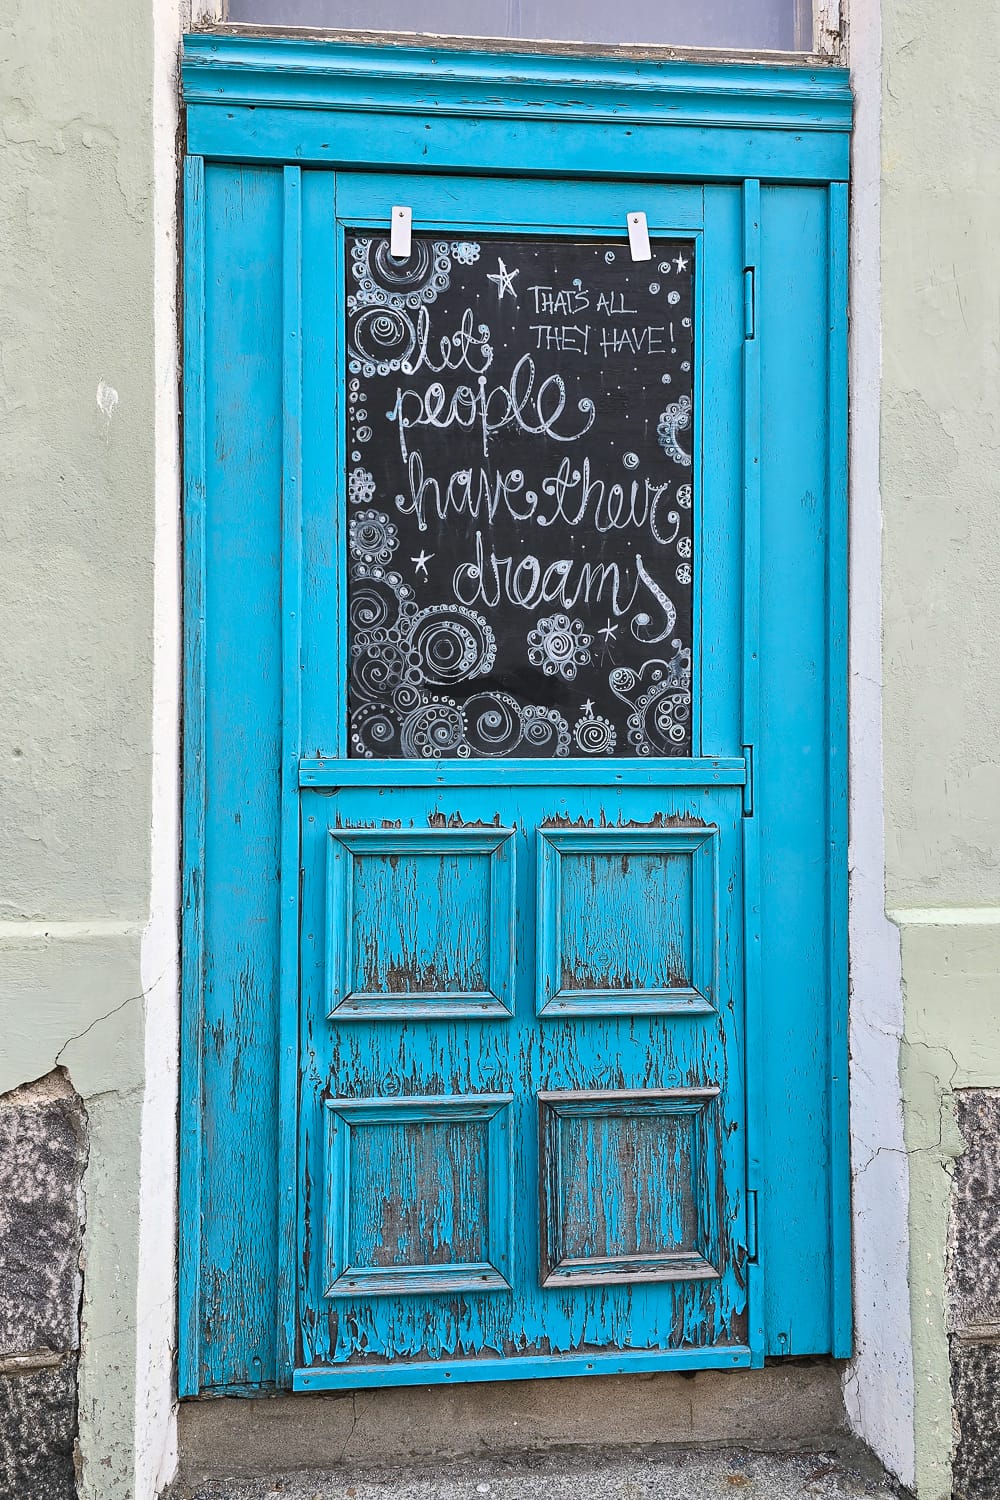 THAT'S ALL
THEY HAVE!
let
people
have their
dreams